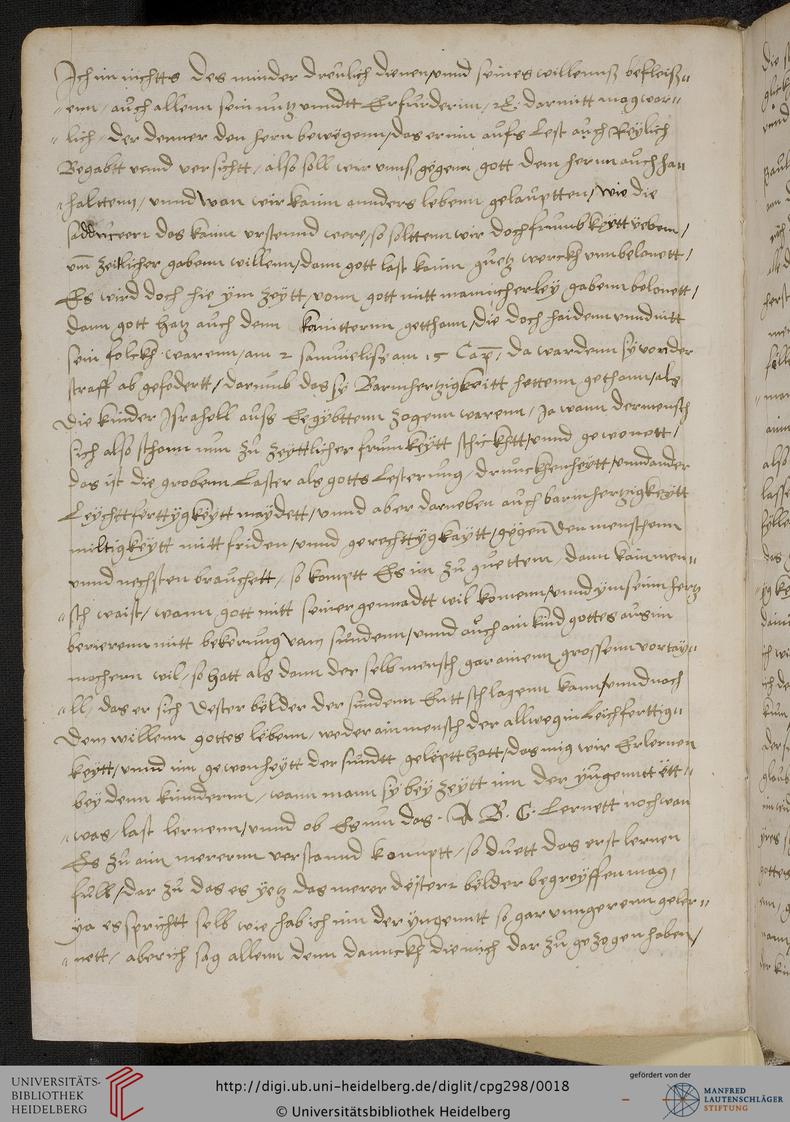 Ich im nichtts des minder dreulich dienen / vnnd seines willenns befleiss„
„enn / auch allenn sein nutz vnndtt Erfurderim / rc. darmitt mag war„
„lich / der denner den hern bewegenn / das er im aufs lest auch Reylich
Begabtt vnnd versichtt / also soll wir vnns gegenn gott dem hernn auch ha„
„halttenn / vnnd wan wir kainn annders lebenn gelauptten / wie die
sadduceerr das kainn vrstennd were / so solttenn wir doch frumbkeytt yeben /
vm zeitlicher gabenn willenn / dann gott last kainn guetz werckh vnnbelonett /
Es wird doch hie ym zeytt / vonn gott mitt mannicherley gabenn belonett /
dann gott hatz auch denn kanitternn getthann / die doch haidenn vnnd nitt
sein folckh warenn / am 2 samuelis am 15 Cap. da wardenn sy von der
straff ab gefodertt / darumb das sy Barmhertzigkeitt hettenn gethann / als
die kinder Israhell auss Eegypttenn zogenn warenn / Ja wann der mensch
sich also schonn nun zu zeyttlicher frumkeytt schickhtt / vnnd gewonett /
das ist die grobenn Laster als gotts lesterung / drunckhenheytt / vnnd ander
Leychtferttygkeytt maydett / vnnd aber darneben auch barmhertzigkeytt
miltigkeytt mitt friden / vnnd gerechttygkaytt / gegen den menschenn
vnnd nechsten brauchett / so komptt Es im zu guettem / dann kain men„
„sch waist / wann gott mitt seiner gennadtt wil komenn / vnnd ym sein hertz
berierenn mitt bekerung vam sundenn / vnnd auch ain kind gottes aus im
machenn wil / so hatt als dann der selb mensch gar ainenn grossenn vortay„
„ll / das er sich dester belder der sundenn Entt schlagenn kann / vnnd nach
dem willenn gottes lebenn / weder ain mensch der allweg in leichferttig„
keytt / vnnd im gewonheytt der sundtt geleptt hatt / das mig wir Erlernen
bey denn kinndernn / wann mann sy bey zeytt inn der yugenntt ett„
„was / last lernenn / vnnd ob Es nun das A B C Lernett noch wan
Es zu ain mererm verstannd komptt / so duett das erst lernen
fill / dar zu das es yetz das merer dester belder begreyffen mag /
ya es sprichtt selb wie hab ich inn der yugenntt so gar vnngerenn geler„
„nett / aber ich sag allenn denn dannckh die mich dar zu gezogen haben /
UNIVERSITÄTS-
BIBLIOTHEK
HEIDELBERG
http://digi.ub.uni-heidelberg.de/diglit/cpg298/0018
© Universitätsbibliothek Heidelberg
gefördert von der
MANFRED
LAUTENSCHLÄGER
STIFTUNG